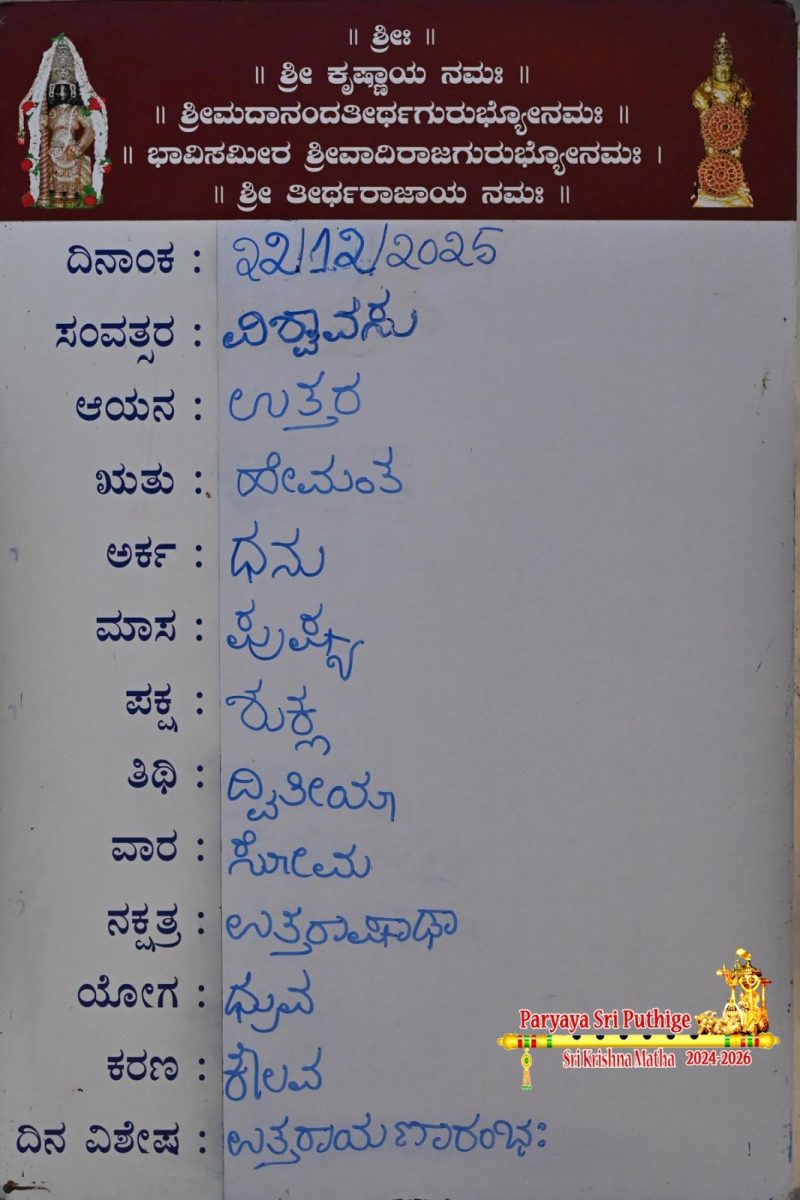 ॥ ಶ್ರೀಃ ॥
॥ ಶ್ರೀ ಕೃಷ್ಣಾಯ ನಮಃ ॥
॥ ಶ್ರೀಮದಾನಂದತೀರ್ಥಗುರುಭ್ಯೋನಮಃ ॥
॥ ಭಾವಿಸಮೀರ ಶ್ರೀವಾದಿರಾಜಗುರುಭ್ಯೋನಮಃ ।
॥ ಶ್ರೀ ತೀರ್ಥರಾಜಾಯ ನಮಃ ॥
ದಿನಾಂಕ : ೨೨/12/೨೦25
ಸಂವತ್ಸರ : ವಿಶ್ವಾವಸು
ಆಯನ : ಉತ್ತರ
ಋತು : ಹೇಮಂತ
ಅರ್ಕ : ಧನು
ಮಾಸ : ಪುಷ್ಯ
ಪಕ್ಷ : ಶುಕ್ಲ
ತಿಥಿ : ದ್ವಿತೀಯಾ
ವಾರ : ಸೋಮ
ನಕ್ಷತ್ರ : ಉತ್ತರಾಷಾಢಾ
ಯೋಗ : ಧ್ರುವ
ಕರಣ : ಕೌಲವ
ದಿನ ವಿಶೇಷ : ಉತ್ತರಾಯಣಾರಂಭಃ
Paryaya Sri Puthige
Sri Krishna Matha 2024-2026